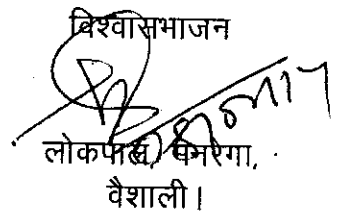 विश्वासभाजन
लोकपाल, मनरेगा,
वैशाली।